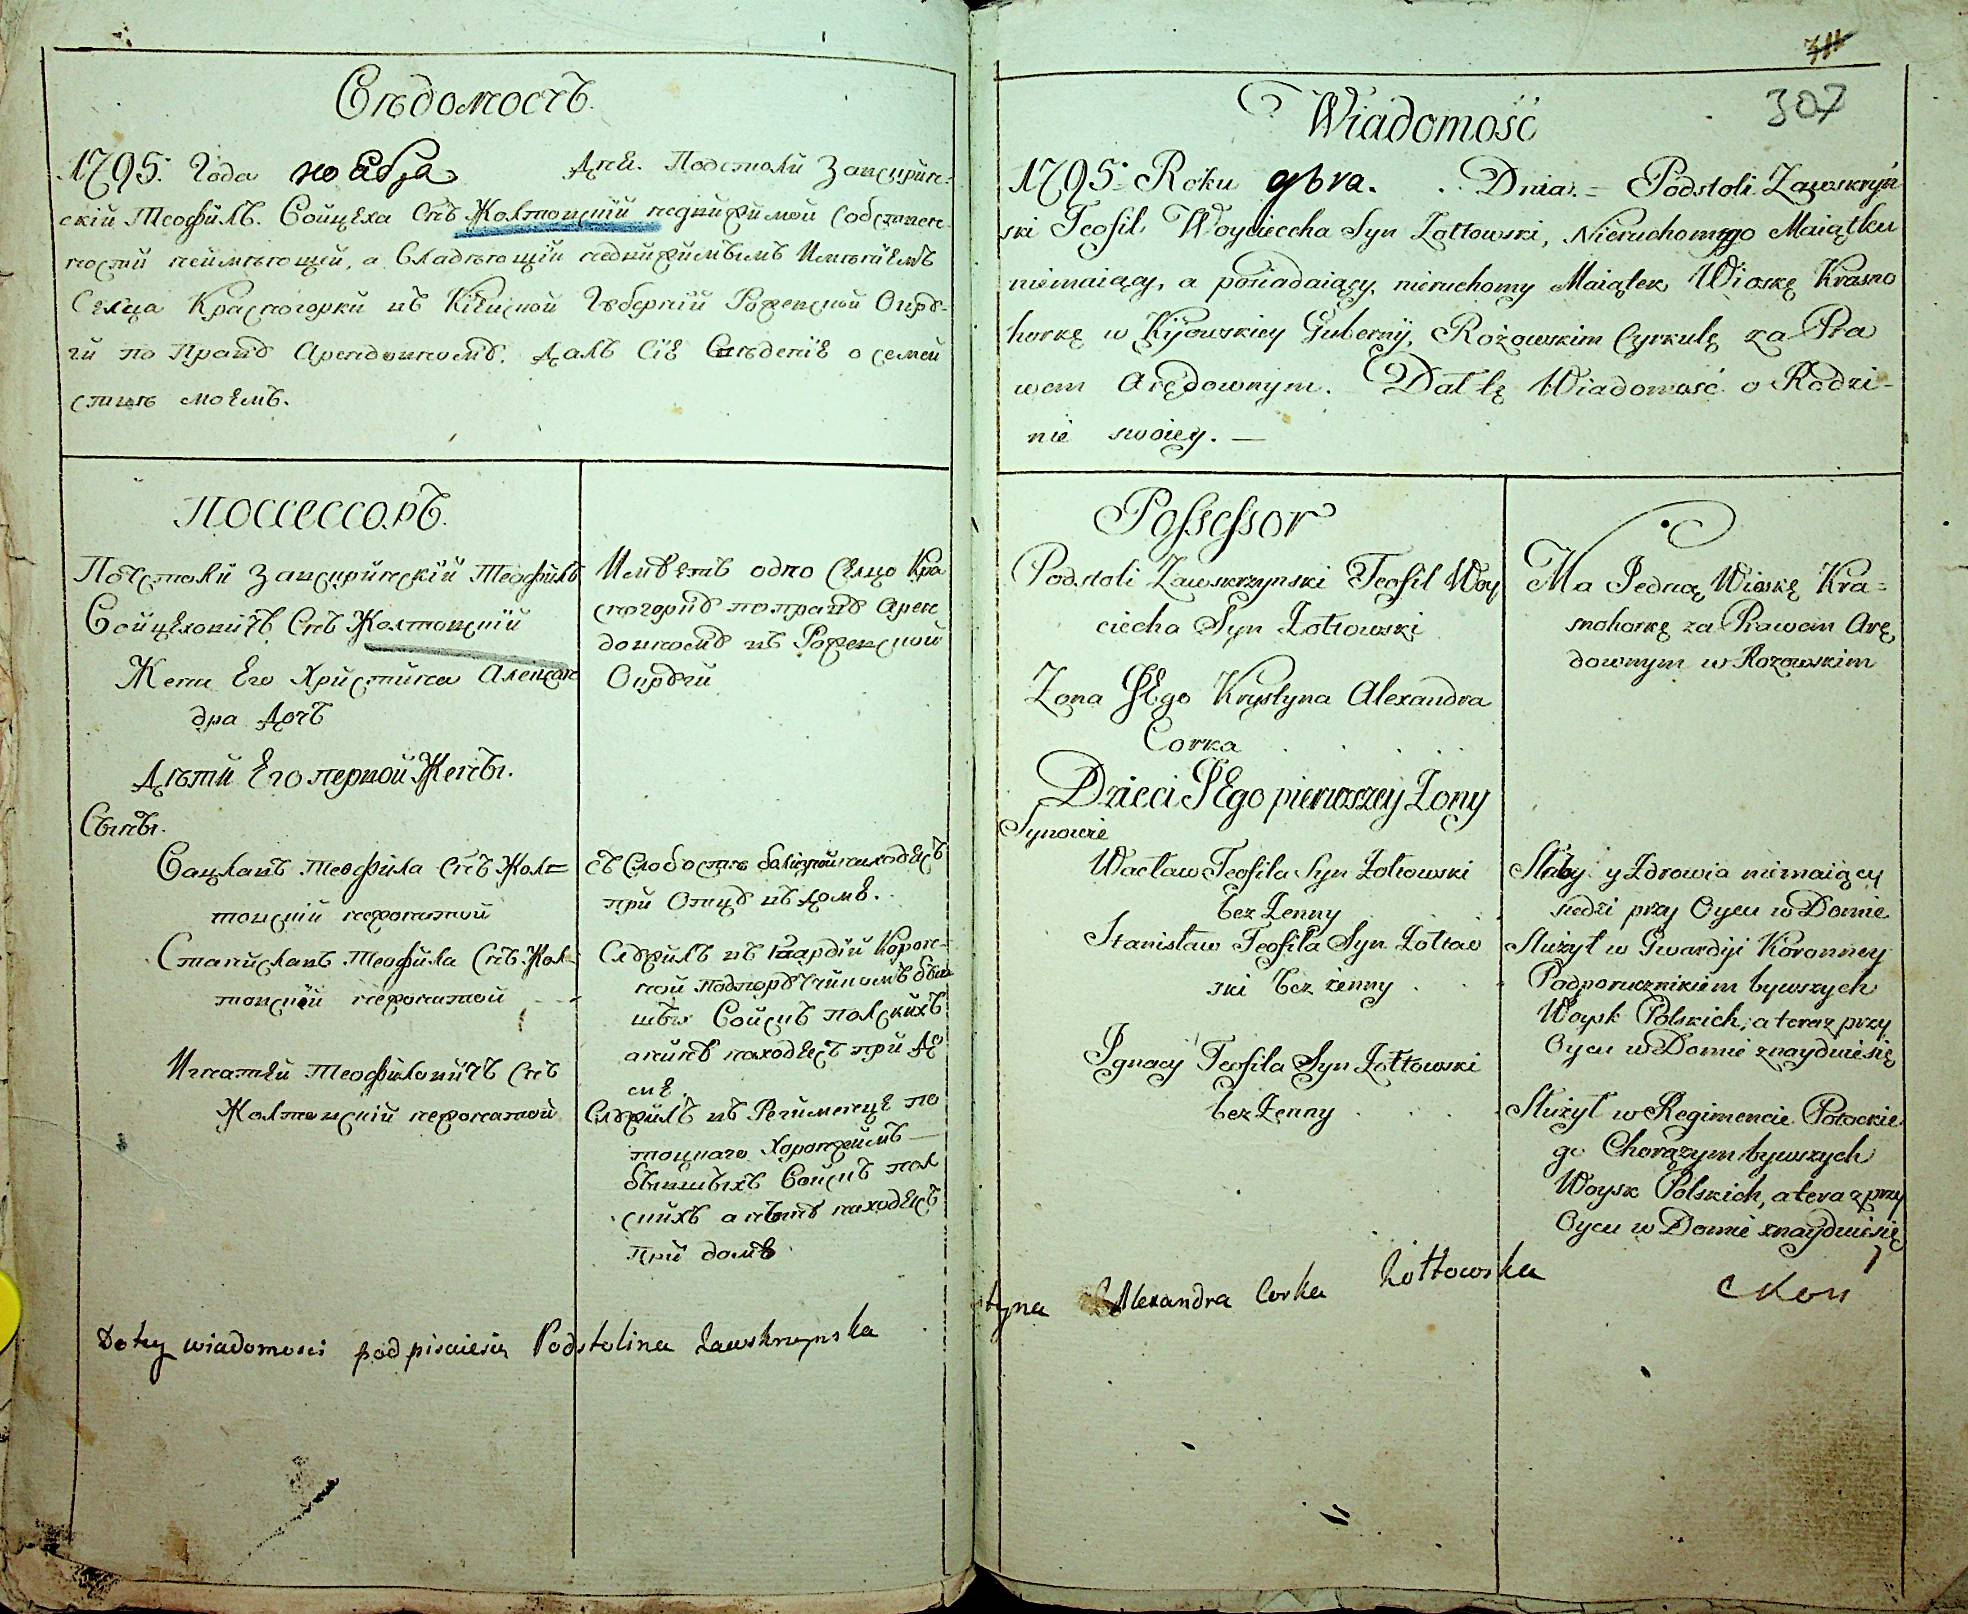 Вѣдомость.
1795. Года ноября Дня. Подстоли Завскрин-
скій Теофилъ Войцеха Снъ Жолтовскій недвижимой собствен-
ности неймѣющій, а владѣющій недвижимымъ Имѣніемъ
Селца Красногорки въ Кіевской Губерній Рожевской Окру-
ги по праву Арендовному. Далъ Сіе Сведеніе о семей
ствѣ моемъ.
ПОССЕССОРЪ.
Подстоли Завскринскій Теофилъ
Войцеховичъ Снъ Жолтовскій
Жена Его Христина Алексан
дра Дочь
Дѣти Его первой Жены.
Сыны.
Вацлавъ Теофила Снъ Жол=
товскій неженатой
Станиславъ Теофила Снъ Жол-
товскій неженатой
Игнатей Теофиловичъ Снъ
Жолтовскій неженатой
Имѣетъ одно Селцо Кра
сногорку по праву Арен
довному въ Рожевской
Округи
при Отцу въ Дому.
Служилъ въ Гвардій Корон-
ной подпоручикомъ быв
шыхъ Войскъ полскихъ
а нинѣ находясъ при До
мѣ.
Служилъ въ Регименцѣ по
тоцкаго Хоронжимъ
бывшыхъ Войскъ пол
скихъ а нынѣ находясъ
при дому
Do tey wiadomosci podpisuiesię Podstolina Zawskrzynska
311
307
Wiadomość
1795: Roku 9bra. Dnia. = Podstoli Zawskryń
ski Teofil Woyciecha Syn Żołtowski, Nieruchomego Maiątku
niemaiący, a posiadaiący nieruchomy Maiątek Wioskę Krasno
horkę w Kijowskiey Gubernÿ, Rożowskim Cyrkulę za Pra
wem Arędownym. Dał tę Wiadomość o Rodzi-
nie swoiey. —
Possessor
Podstoli Zawskrzynski Teofil Woy
ciecha Syn Żołtowski
Żona JEgo Krystyna Alexandra
Corka
Dzieci JEgo pierwszey Żony
Synowie
Wacław Teofila Syn Żołtowski
bez Żenny
Stanisław Teofila Syn Żołtow
ski bez żenny
Ignacy Teofila Syn Żołtowski
bez Żenny
Ma Jedną Wioskę Kra=
snohorkę za Prawem Arę
downym w Rozowskim
Słaby y Zdrowia niemaiący
siedzi przy Oycu w Domie
Służył w Gwardÿi Koronney
Podporucznikiem bywszych
Woysk Polskich, a teraz przy
Oycu w Domie znayduiesię
Służył w Regimencie Potockie
go Chorążym bywszych
Woysk Polskich, a teraz przy
Oycu w Domie znayduiesię
tyna Alexandra Corka Żołtowska